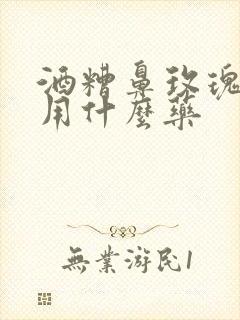 酒糟鼻玫瑰
用什麼藥
無業游民1